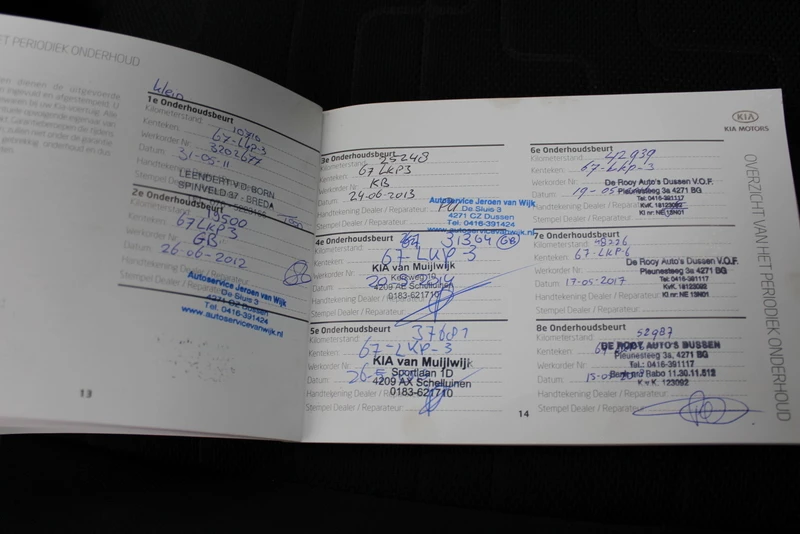 ET PERIODIEK ONDERHOUD
klein
1e Onderhoudsbeurt
Kilometerstand: 10710
Kenteken: 67-LKP-3
Werkorder Nr: 3202677
Datum: 31-05-11
Handtekening Dealer
Stempel Dealer
LEENDERT V.D. BORN
SPINVELD 37 - BREDA
2e Onderhoudsbeurt
19500
Kenteken: 67LKP3
Werkorder Nr: GB
Datum: 26-06-2012
Handtekening Dealer
Stempel Dealer
Autoservice Jeroen van Wijk
De Sluis 3
4271 CZ Dussen
Tel. 0416-391424
www.autoservicevanwijk.nl
13
3e Onderhoudsbeurt
Kilometerstand: 25248
Kenteken: 67LKP3
Werkorder Nr: KB
Datum: 24-06-2013
Handtekening Dealer / Reparateur:
Stempel Dealer / Reparateur:
Autoservice Jeroen van Wijk
De Sluis 3
4271 CZ Dussen
Tel. 0416-391424
www.autoservicevanwijk.nl
4e Onderhoudsbeurt
31364 GB
Kenteken: 67-LKP-3
KIA van Muijlwijk
Werkorder Nr:
4209 AE Schelluinen
0183-621710
Datum:
Handtekening Dealer / Reparateur:
Stempel Dealer / Reparateur:
5e Onderhoudsbeurt
Kilometerstand: 37681
Kenteken: 67-LKP-3
KIA van Muijlwijk
Sportlaan 1D
4209 AX Schelluinen
0183-621710
Werkorder Nr:
Datum:
Handtekening Dealer / Reparateur:
Stempel Dealer / Reparateur:
14
KIA
KIA MOTORS
6e Onderhoudsbeurt
Kilometerstand: 42939
Kenteken: 67-LKP-3
Werkorder Nr:
De Rooy Auto's Dussen V.O.F.
Pleunesteeg 3a 4271 BG
Tel: 0416-391117
KvK. 18123092
Kl nr: NE 15N01
Datum:
Handtekening Dealer / Reparateur:
Stempel Dealer / Reparateur:
7e Onderhoudsbeurt
Kilometerstand: 48226
Kenteken: 67-LKP-6
Werkorder Nr:
De Rooy Auto's Dussen V.O.F.
Pleunesteeg 3a 4271 BG
Tel: 0416-391117
KvK. 18123092
Kl nr: NE 15N01
Datum: 17-05-2017
Handtekening Dealer / Reparateur:
Stempel Dealer / Reparateur:
8e Onderhoudsbeurt
Kilometerstand: 52987
Kenteken:
DE ROOY AUTO'S DUSSEN
Pleunesteeg 3a, 4271 BG
Tel.: 0416-391117
Rabo 11.30.11.512
K v K. 123092
Werkorder Nr:
Datum:
Handtekening Dealer / Reparateur:
Stempel Dealer / Reparateur:
OVERZICHT VAN HET PERIODIEK ONDERHOUD